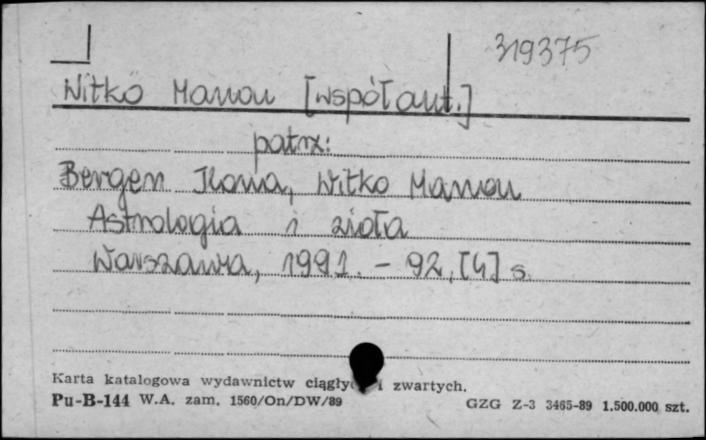 319375
Witko Manou [współaut.]
patrz:
Bergen Ilona, Witko Manou
Astrologia i zioła
Warszawa, 1991. - 92, [4] s.
Karta katalogowa wydawnictw i zwartych.
Pu-B-144 W.A. zam. 1560/On/DW/89 GZG Z-3 3465-89 1.500.000 szt.